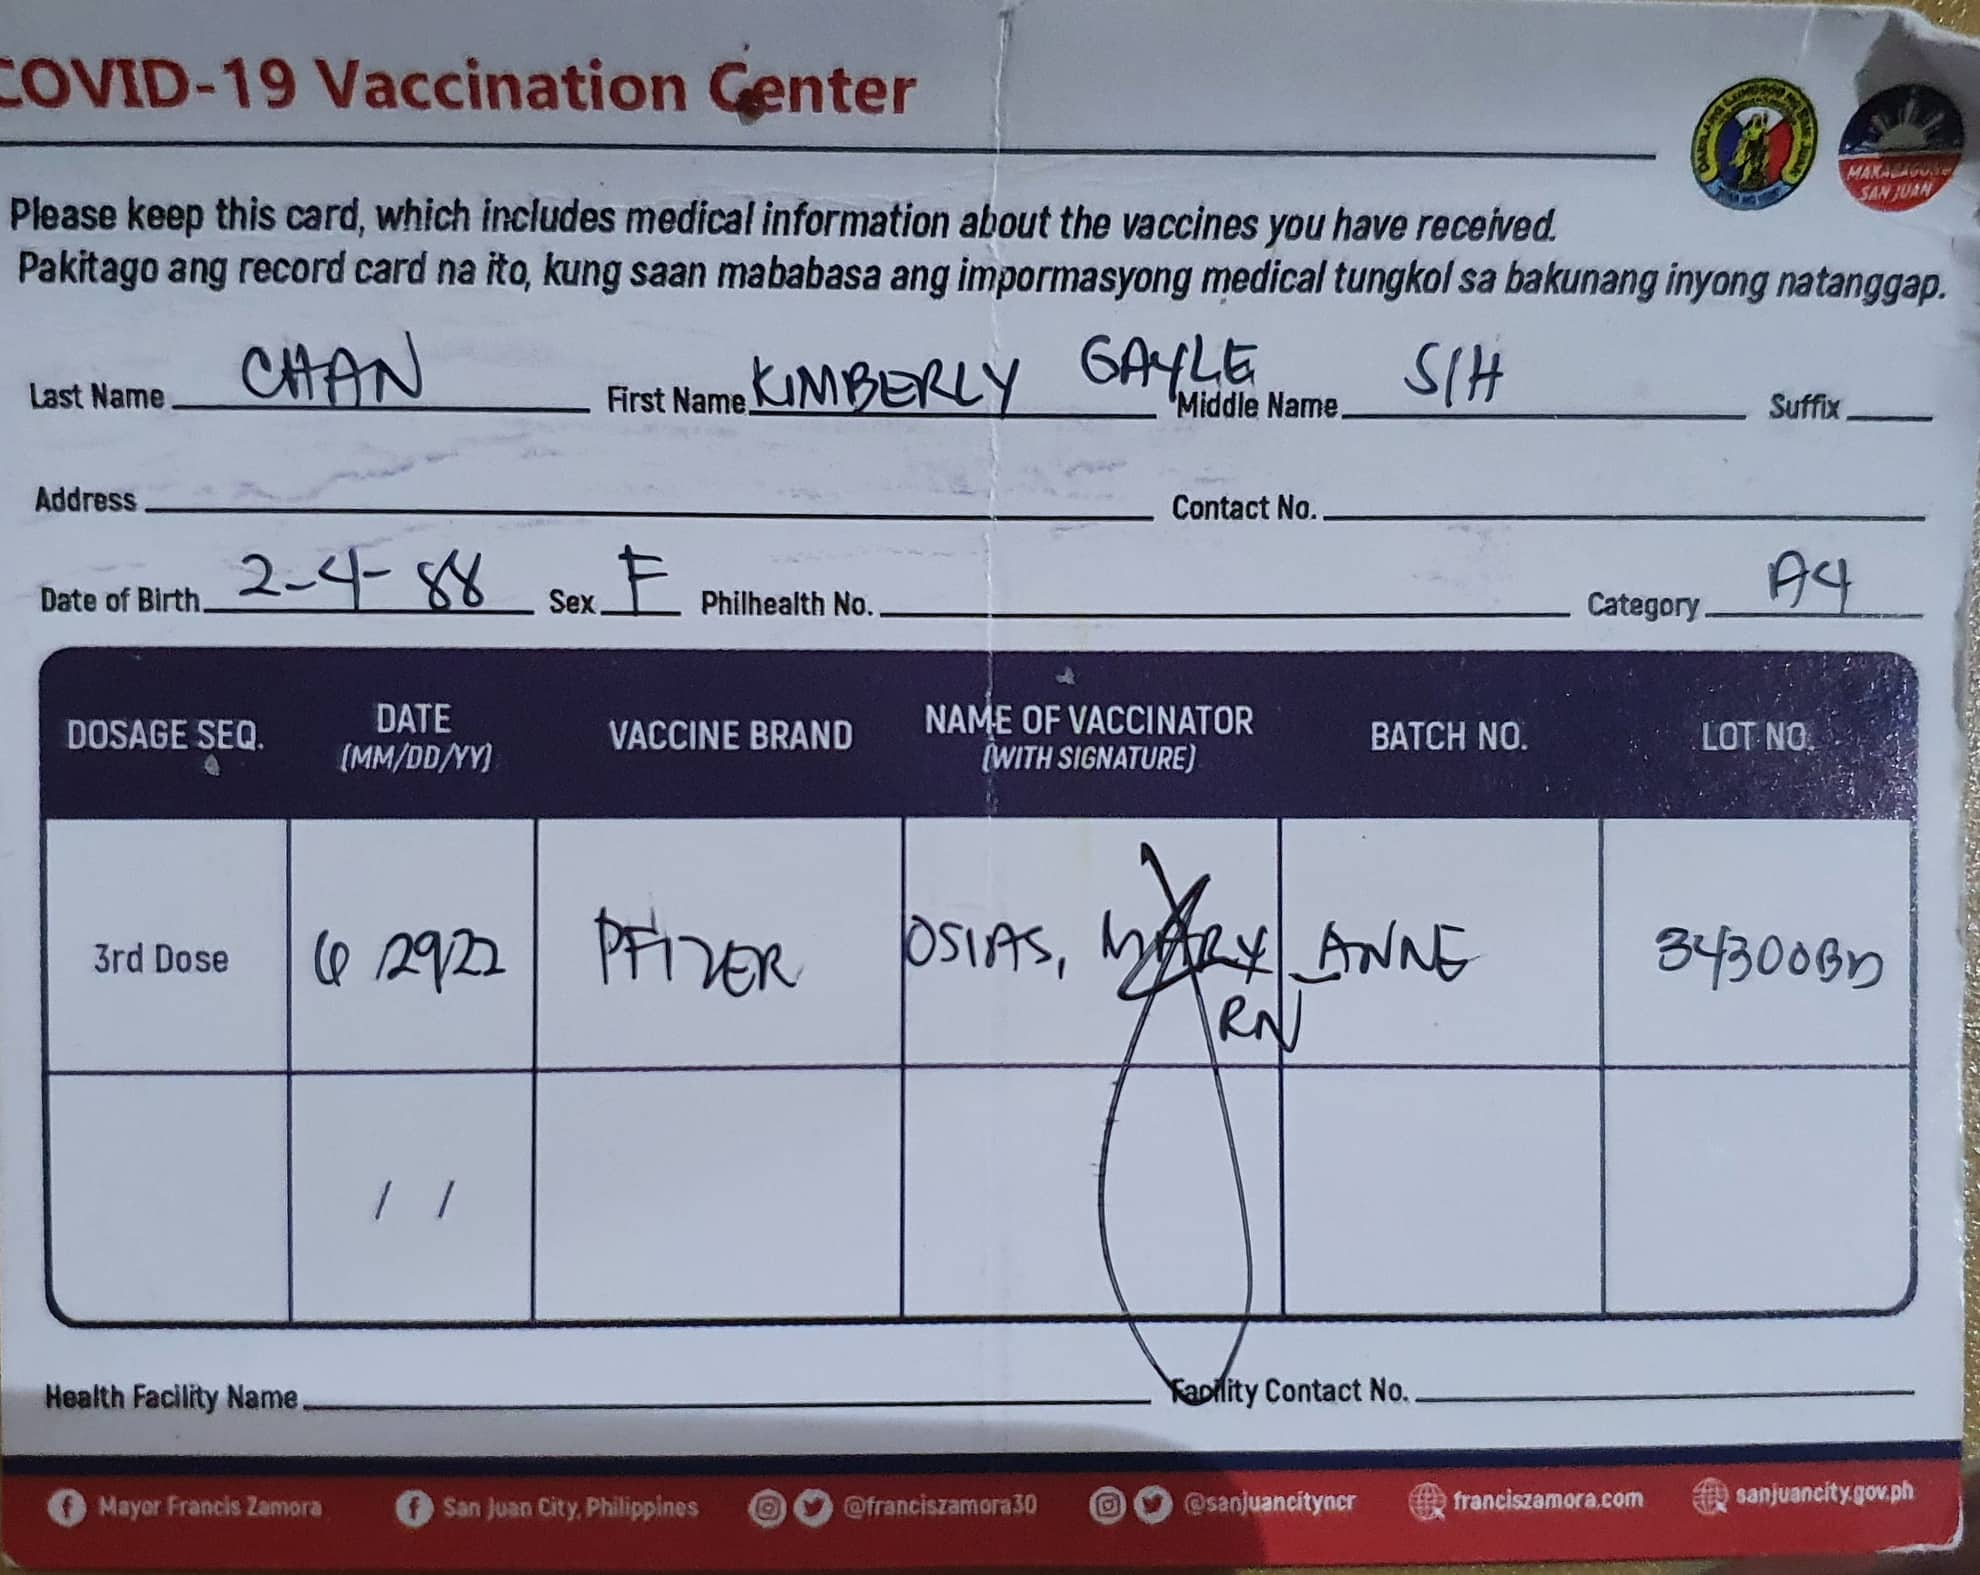 COVID-19 Vaccination Center
MAKABAGONG
SAN JUAN
Please keep this card, which includes medical information about the vaccines you have received.
Pakitago ang record card na ito, kung saan mababasa ang impormasyong medical tungkol sa bakunang inyong natanggap.
Last Name CHAN First Name KIMBERLY GAYLE Middle Name S/H Suffix
Address Contact No.
Date of Birth 2-4-88 Sex F Philhealth No. Category A4
DOSAGE SEQ. DATE (MM/DD/YY) VACCINE BRAND NAME OF VACCINATOR (WITH SIGNATURE) BATCH NO. LOT NO.
3rd Dose 6/29/22 PFIZER OSIAS, MARY ANNE RN
/ /
Health Facility Name Facility Contact No.
Mayor Francis Zamora San Juan City, Philippines @franciszamora30 @sanjuancityncr franciszamora.com sanjuancity.gov.ph